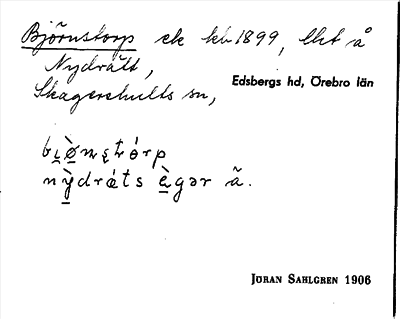 Björnstorp ek kb 1899, lht å
Nydrätt,
Skagershults sn,
Edsbergs hd, Örebro län
nỳdrǽts ä̀gər ã.
JÖRAN SAHLGREN 1906